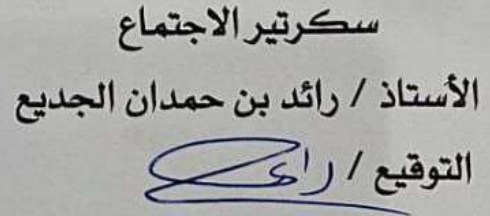 سكرتير الاجتماع
الأستاذ / رائد بن حمدان الجديع
التوقيع /